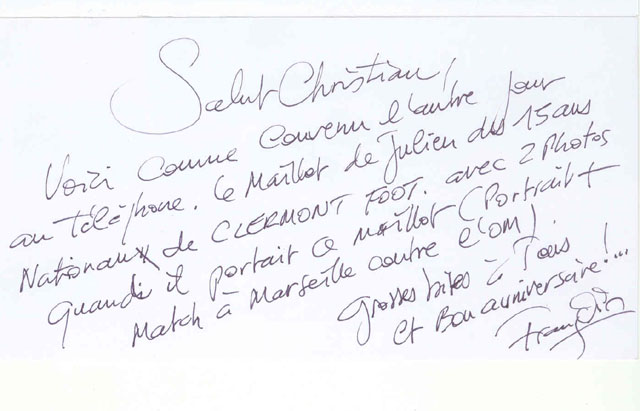 Salut Christian !
Voici comme convenu l'autre jour
au téléphone. le Maillot de Julien des 15 ans
Nationaux de CLERMONT FOOT. avec 2 Photos
Quand il portait ce maillot (Portrait +
Match à Marseille contre l'OM).
grosses bites à Tous
et Bon anniversaire !...